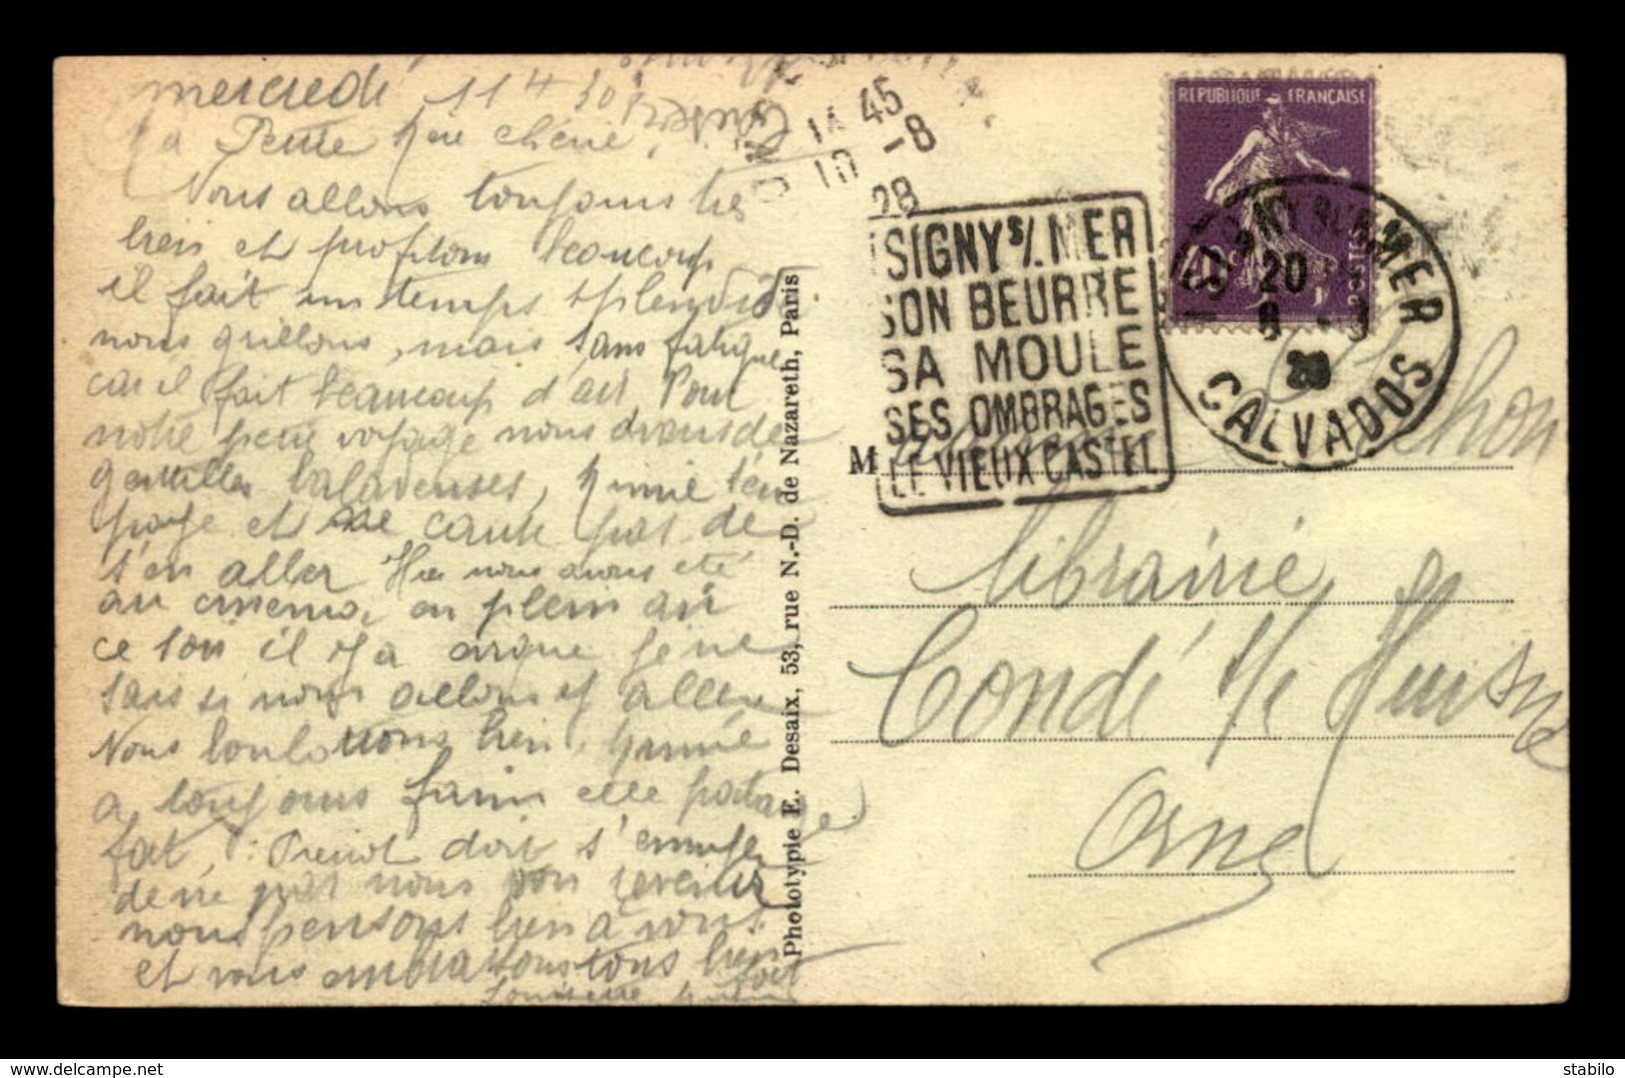 mercredi 11 H 30
Ma Petite Mère chérie,
Nous allons toujours très
bien et profitons beaucoup
il fait un temps splendide
nous grillons, mais sans fatigue
car il fait beaucoup d'air. Pour
notre petit voyage nous avons de
gentilles baladeuses,
et ne cause pas de
s'en aller Hier nous avons été
au cinema, en plein air
ce soir il y a cirque je ne
sais si nous allons y aller
Nous boulottons bien,
a toujours faim elle
doit s'ennuyer
de ne pas nous voir
nous pensons bien à vous
et vous embrassons tous bien
fort
Phototypie E. Desaix, 53, rue N.-D. de Nazareth, Paris
14 45
10 -8
28
ISIGNY S/. MER
SON BEURRE
SA MOULE
SES OMBRAGES
LE VIEUX CASTEL
REPUBLIQUE FRANÇAISE
POSTES
ISIGNY SUR MER
20
28
CALVADOS
M
Librairie
Condé s/ Huisne
Orne
delcampe.net
stabilo